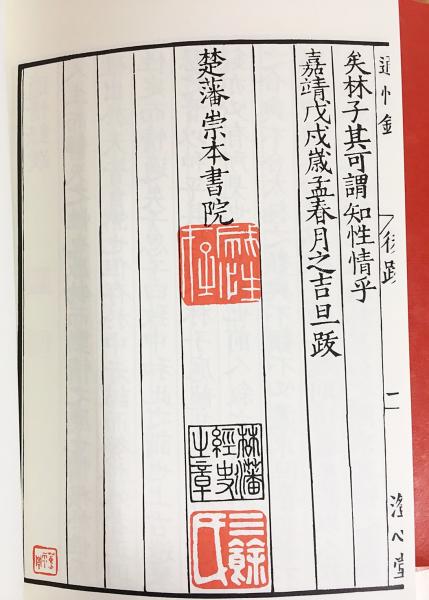 二
矣林子其可謂知性情乎
嘉靖戊戌歲孟春月之吉旦跋
楚藩崇本書院
藩
經史
之章
三餘
氏